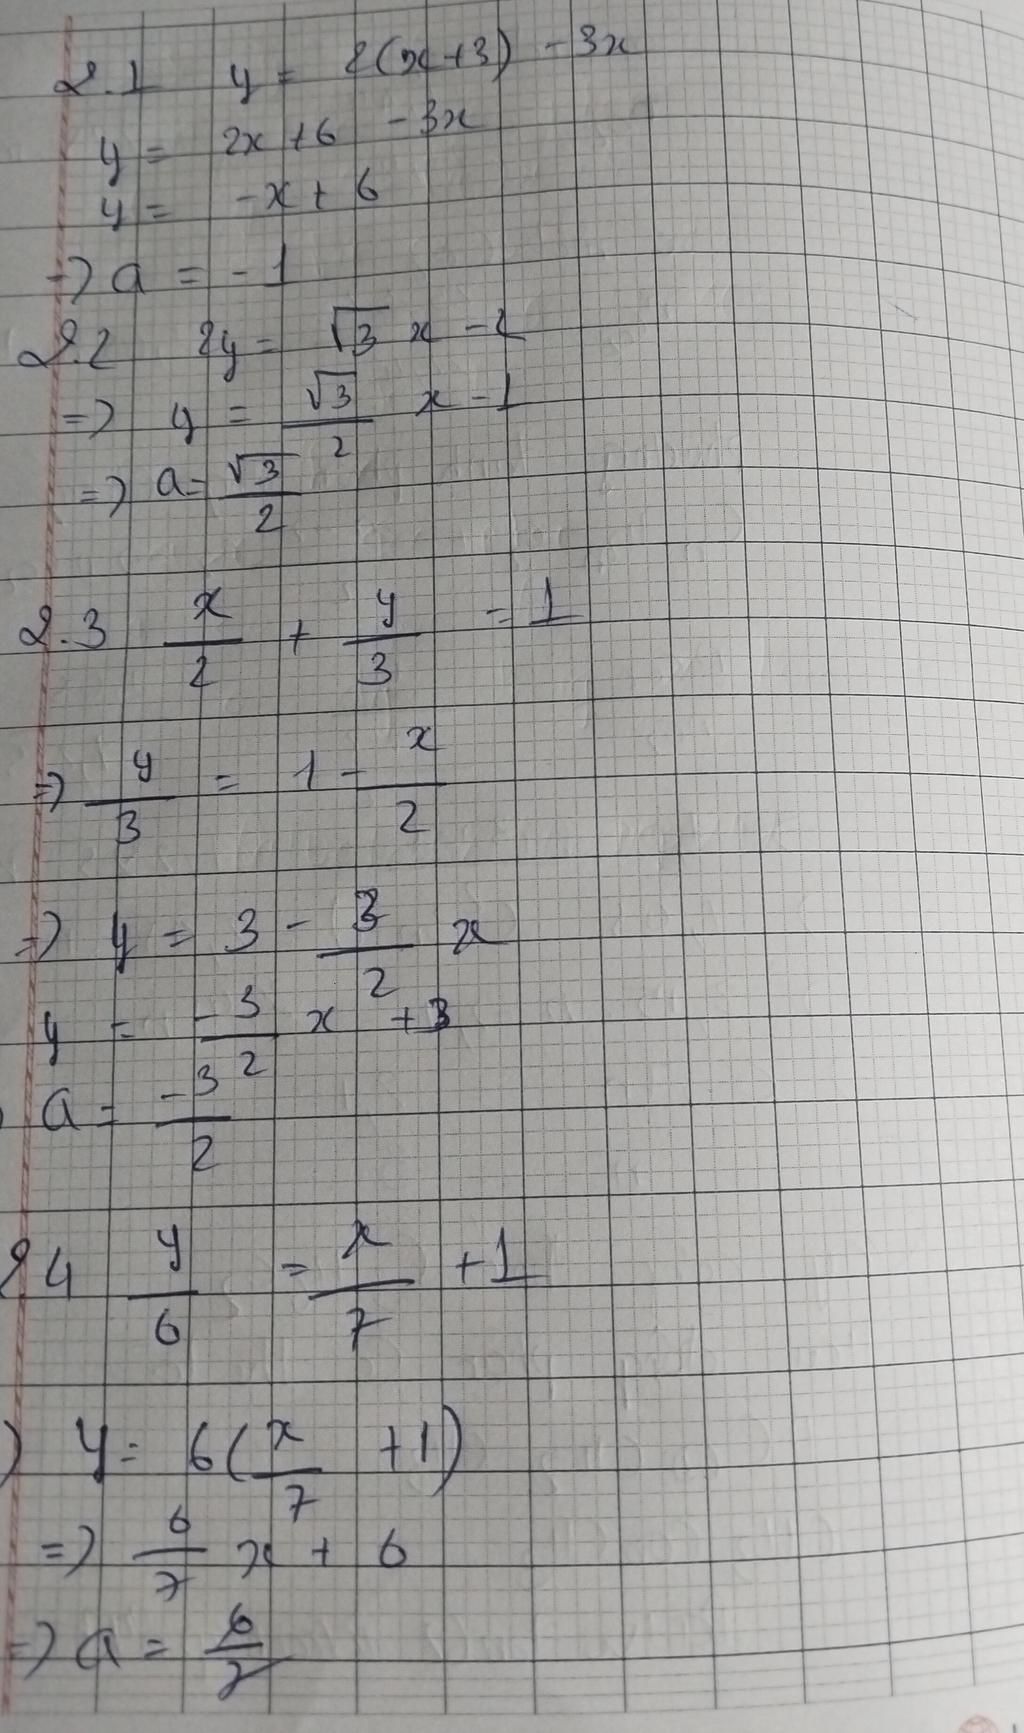 2.1 y = 2(x+3) - 3x
y = 2x + 6 - 3x
y = -x + 6
=> a = -1
2.2 2y = √3 x - 2
=> y = √3/2 x - 1
=> a = √3/2
2.3 x/2 + y/3 = 1
=> y/3 = 1 - x/2
=> y = 3 - 3/2 x
y = -3/2 x + 3
a = -3/2
2.4 y/6 = x/7 + 1
) y = 6(x/7 + 1)
=> 6/7 x + 6
=> a = 6/7